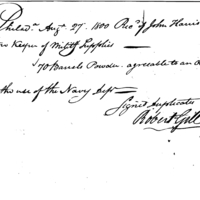 Philada. Augt. 27. 1800 Recd. of John Harris
Keeper of Milty. Supplies
70 Barrels Powder. agreeable to an O
the use of the Navy Dept.
Signed Duplicates
Robert Gill